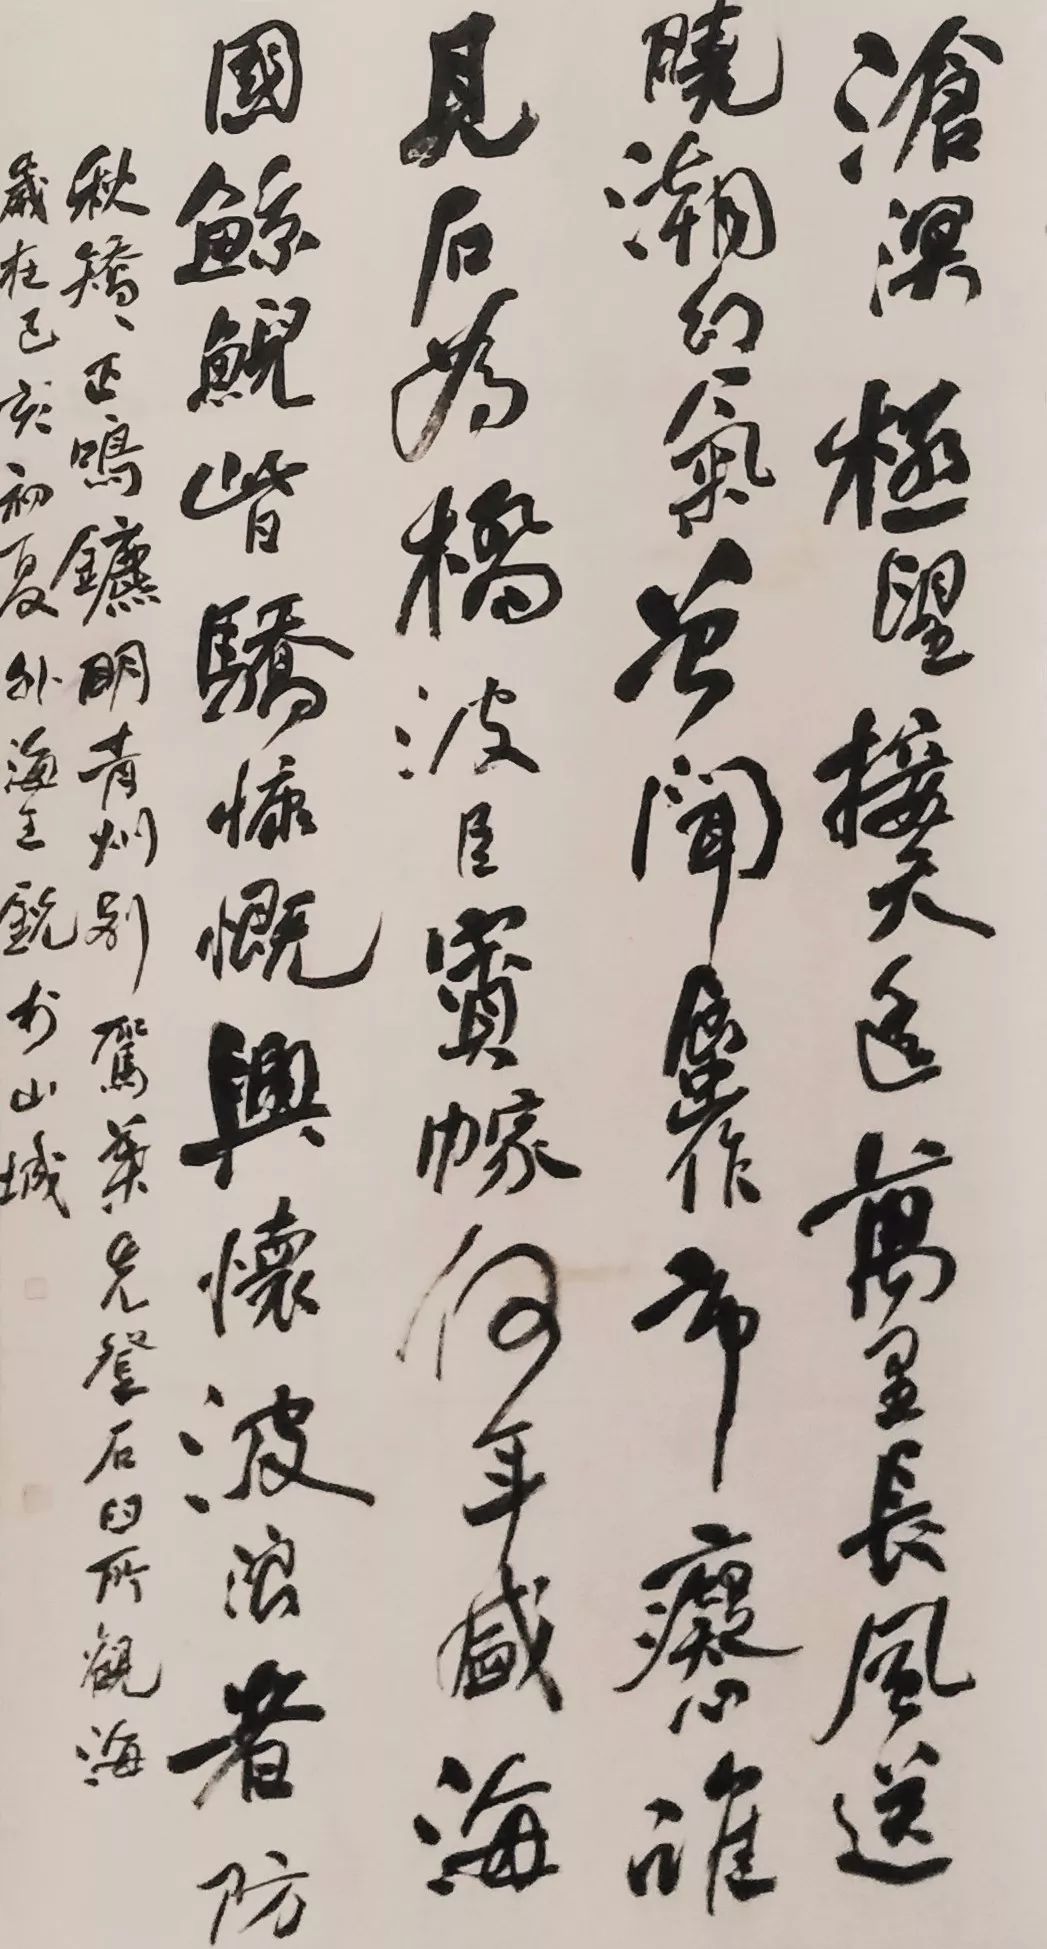 滄溟極望接天遥萬里長風送
曉潮幻氣曾聞蜃作市癡心誰
見石為橋波臣賓幏何年盛海
國鯨鯢皆驕慷慨興懷波浪者防
秋矯矯正鳴鑣明青州别駕葉先登石臼所觀海
歲在己亥初夏外海王銳於山城